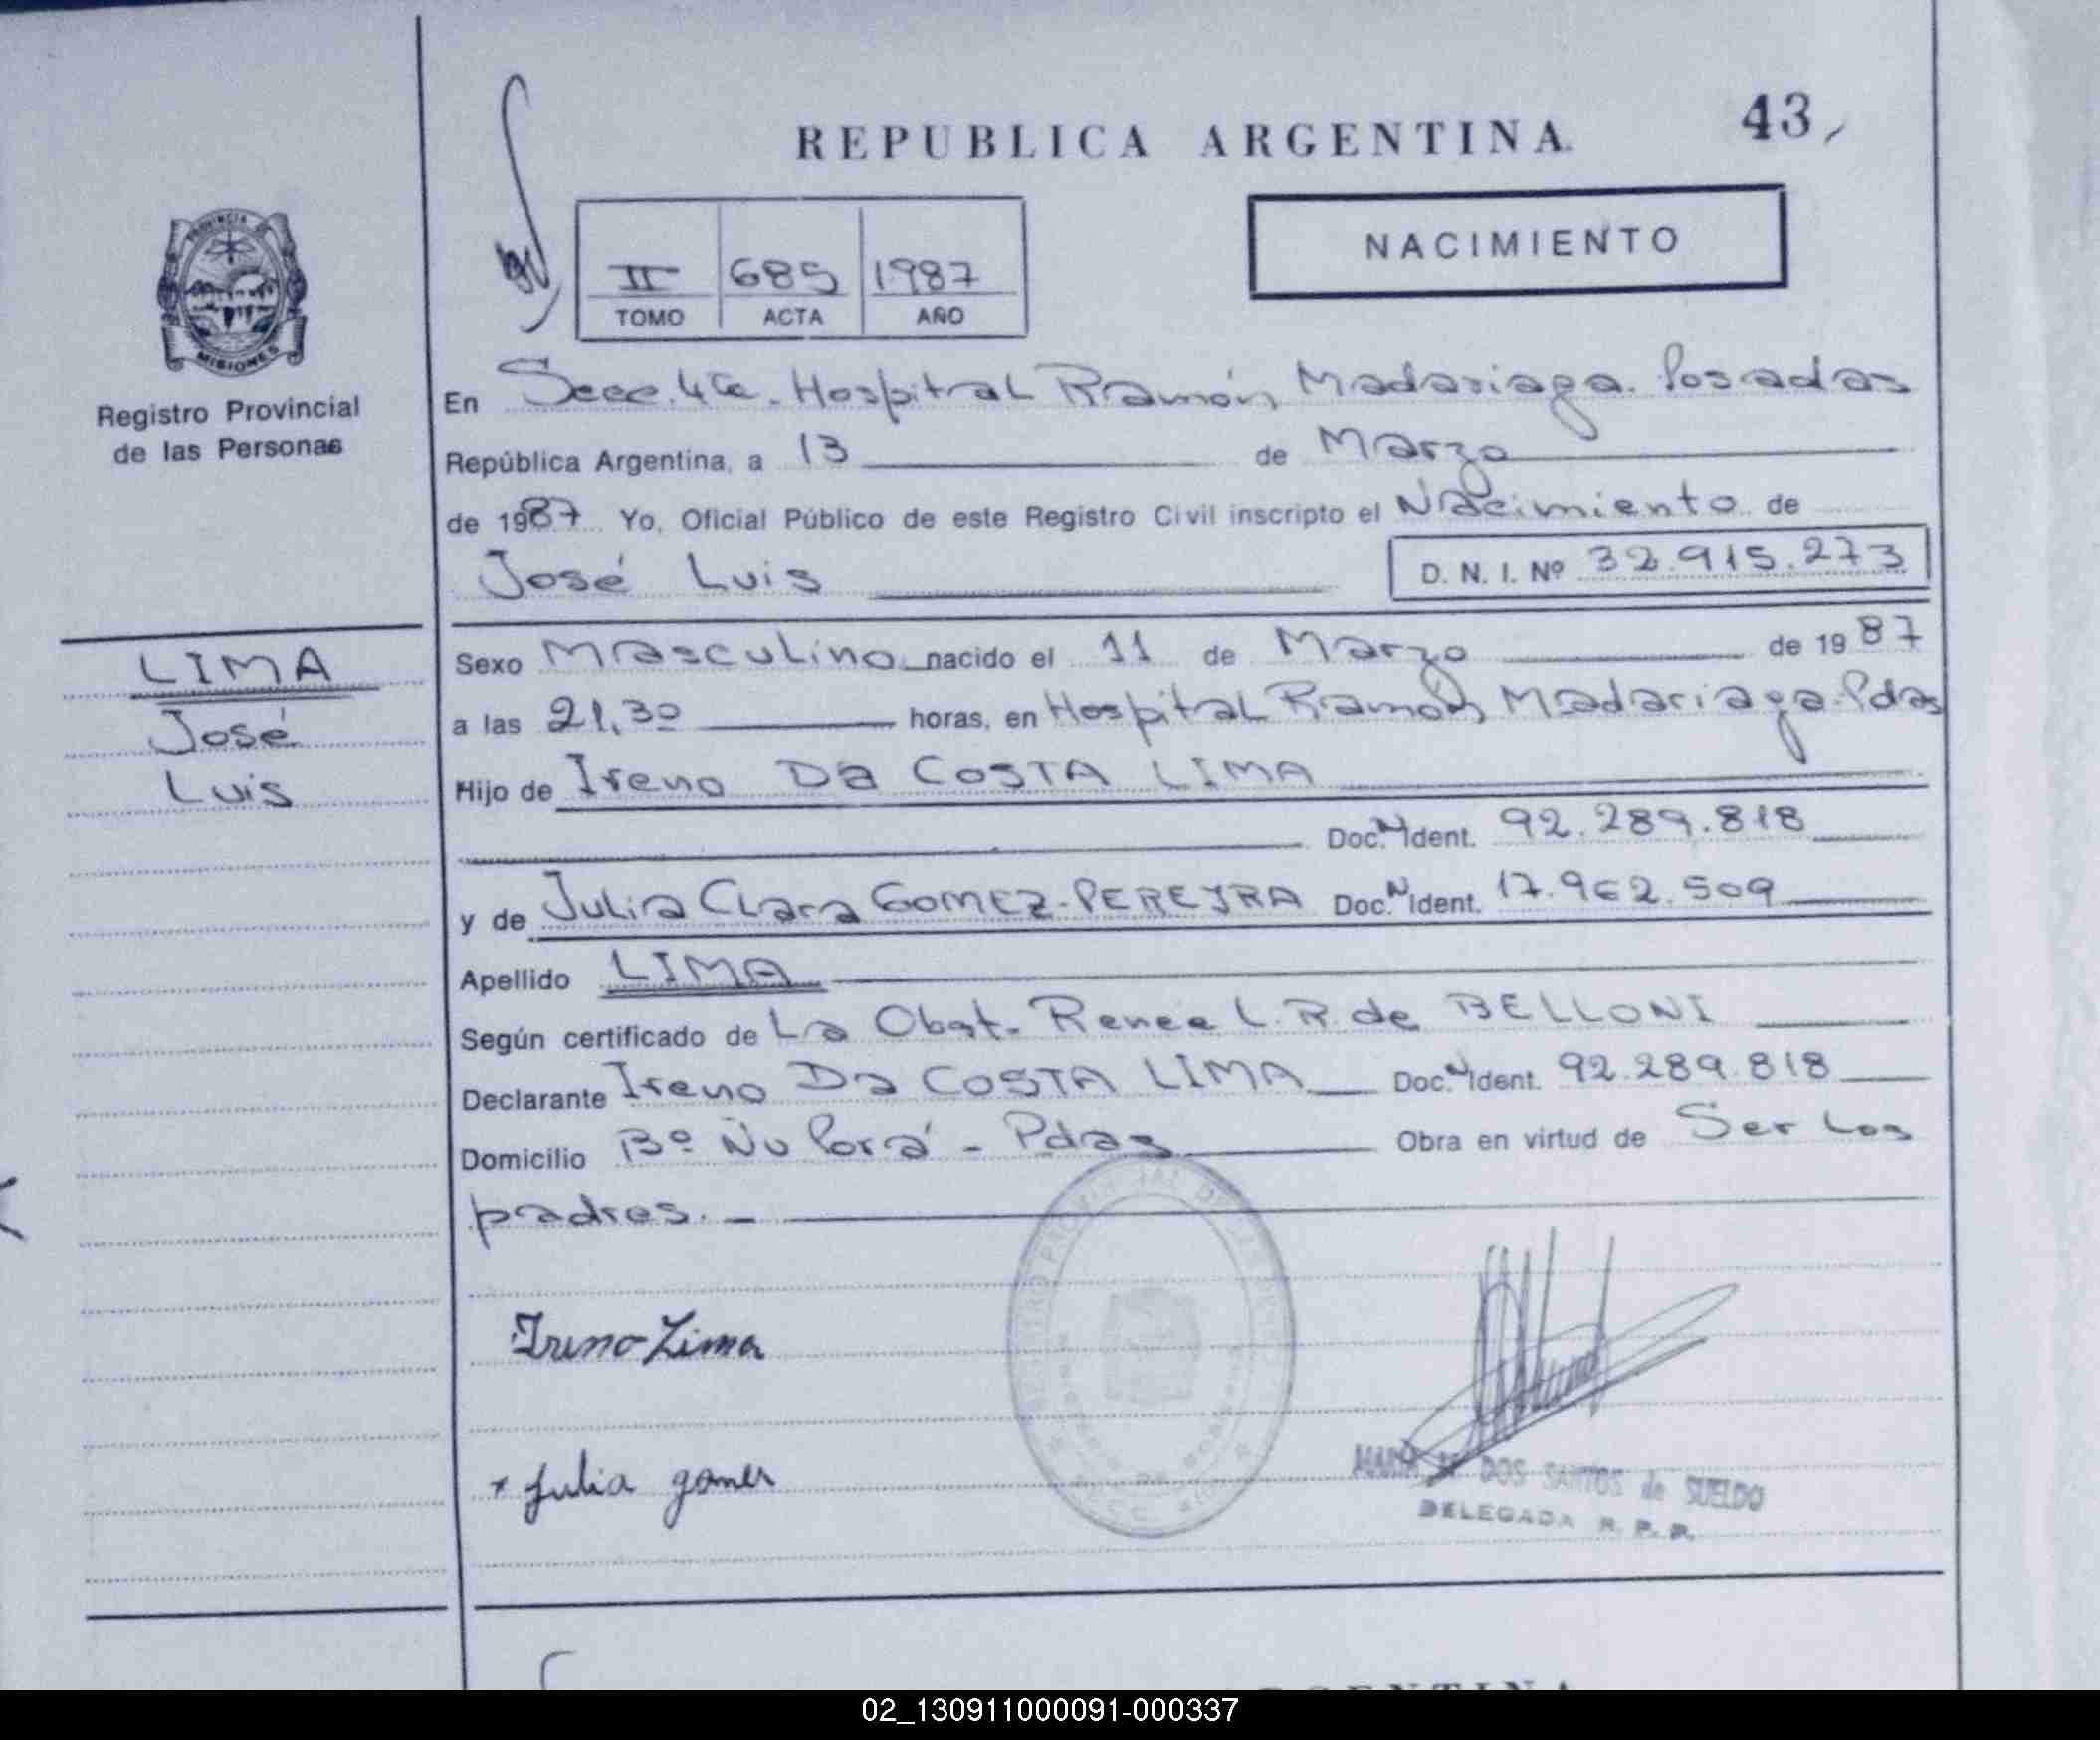 43,
REPUBLICA ARGENTINA
NACIMIENTO
II 685 1987
TOMO ACTA AÑO
PROVINCIA DE
MISIONES
Registro Provincial
de las Personas
LIMA
José
Luis
En Secc. 4ta. Hospital Ramón Madariaga. Posadas
República Argentina, a 13 de Marzo
de 1987 Yo, Oficial Público de este Registro Civil inscripto el Nacimiento de
José Luis D. N. I. Nº 32.915.273
Sexo Masculino nacido el 11 de Marzo de 1987
a las 21,30 horas, en Hospital Ramón Madariaga. Pdas
Hijo de Ireno Da COSTA LIMA
Doc. N Ident. 92.289.818
y de Julia Clara GOMEZ-PEREYRA Doc. N Ident. 17.962.509
Apellido LIMA
Según certificado de La Obst. Renee L. R. de BELLONI
Declarante Ireno Da COSTA LIMA Doc. N Ident. 92.289.818
Domicilio Bº Ñu Porá - Pdas Obra en virtud de Ser Los
padres. -
Ireno Lima
Julia gomez
DOS SANTOS de SUELDO
DELEGADA R. P. P.
ARGENTINA
02_130911000091-000337